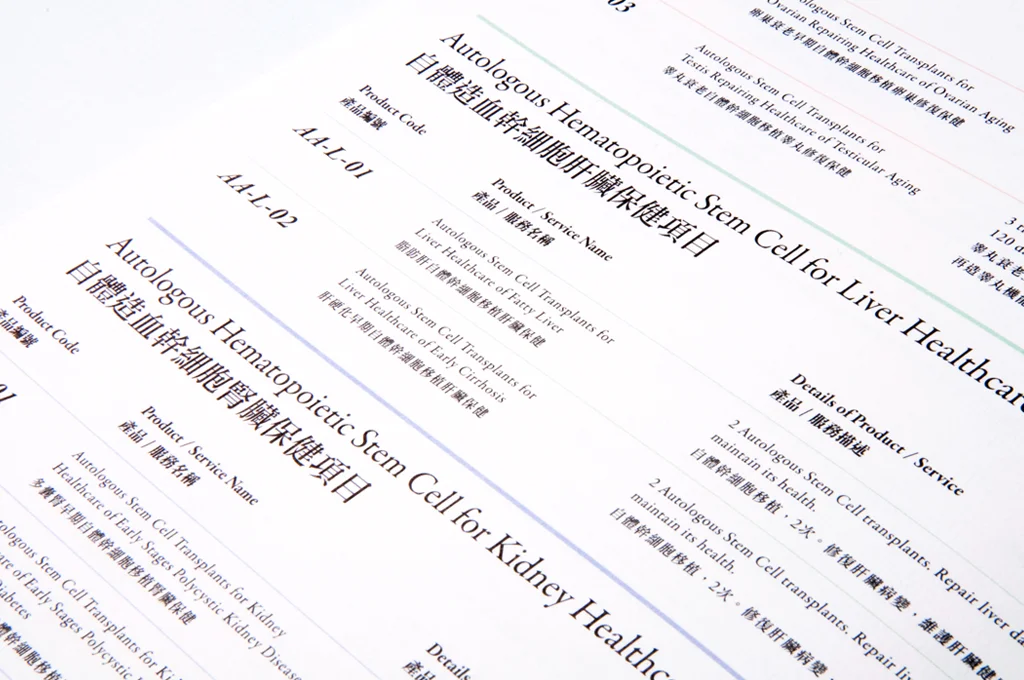 03
ologous Stem Cell Transplants for
Ovarian Repairing Healthcare of Ovarian Aging
卵巢衰老早期自體幹細胞移植卵巢修復保健
Autologous Stem Cell Transplants for
Testis Repairing Healthcare of Testicular Aging
睪丸衰老自體幹細胞移植睪丸修復保健
3
120
睪丸衰老
再造睪丸機
Autologous Hematopoietic Stem Cell for Liver Healthcare
自體造血幹細胞肝臟保健項目
Product Code
產品編號
AA-L-01
AA-L-02
Product / Service Name
產品 / 服務名稱
Autologous Stem Cell Transplants for
Liver Healthcare of Fatty Liver
脂肪肝自體幹細胞移植肝臟保健
Autologous Stem Cell Transplants for
Liver Healthcare of Early Cirrhosis
肝硬化早期自體幹細胞移植肝臟保健
Details of Product / Service
產品 / 服務描述
2 Autologous Stem Cell transplants. Repair liver
maintain its health.
自體幹細胞移植，2次。修復肝臟病變，維護肝臟健
2 Autologous Stem Cell transplants. Repair li
maintain its health.
自體幹細胞移植，2次。修復肝臟病變，
Autologous Hematopoietic Stem Cell for Kidney Healthc
自體造血幹細胞腎臟保健項目
Product Code
產品編號
Product / Service Name
產品 / 服務名稱
Autologous Stem Cell Transplants for Kidney
Healthcare of Early Stages Polycystic Kidney Disease
多囊腎早期自體幹細胞移植腎臟保健
ologous Stem Cell Transplants for Ki
are of Early Stages Polycystic
Diabetes
自體幹細胞移植
Details
產品